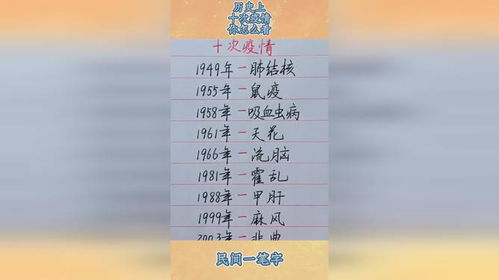 历史上
十次疫情
你怎么看
十次疫情
1949年－肺结核
1955年－鼠疫
1958年－吸血虫病
1961年－天花
1966年－流脑
1981年－霍乱
1988年－甲肝
1999年－麻风
2003年－非典
民间一笔字